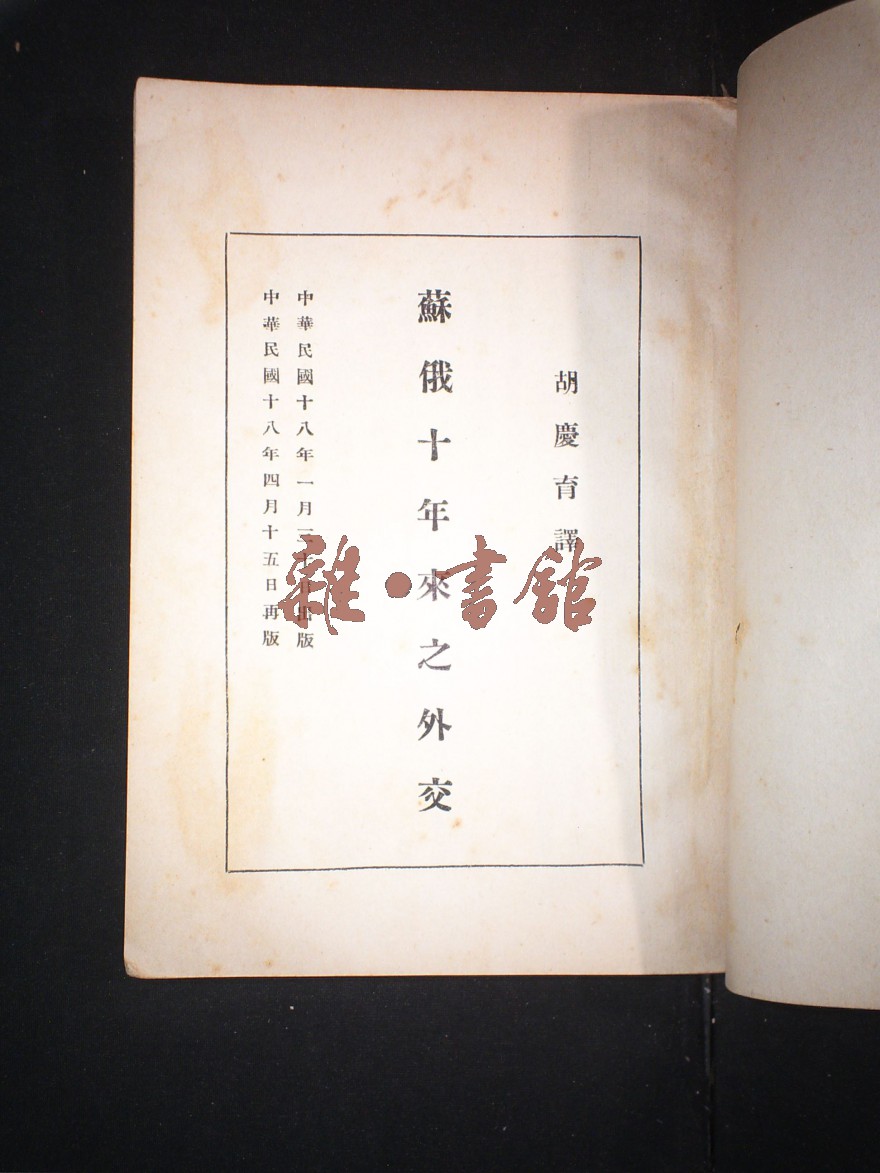 胡慶育譯
蘇俄十年來之外交
中華民國十八年一月二十日出版
中華民國十八年四月十五日再版
雜·書館